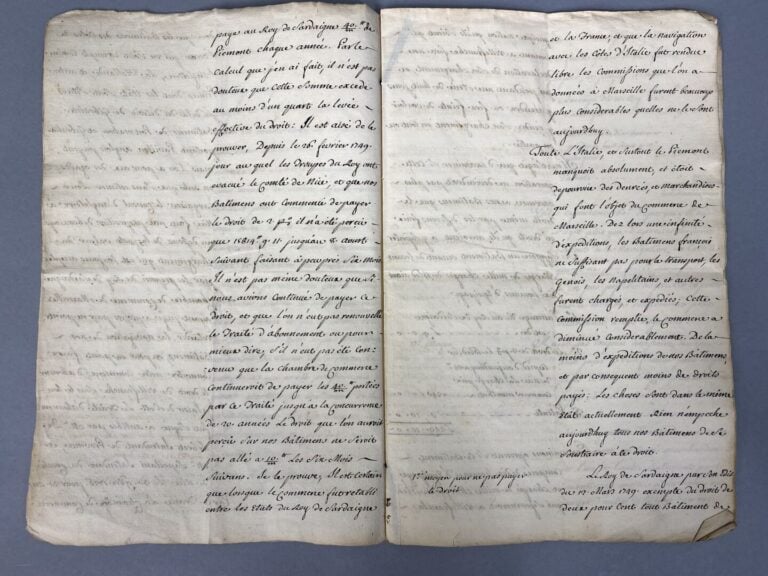 paye au Roy de Sardaigne 40.m de
Piemont chaque année. Par le
calcul que j'en ai fait, il n'est pas
douteux que cette Somme excede
au moins d'un quart la levée
effective du droit: Il est aisé de le
prouver, Depuis le 26 fevrier 1749.
jour au quel les Troupes du Roy ont
evacué le Comté de Nice, et que nos
Batimens ont Commencé de payer
le droit de 2 p% il n'a été perçû
que 15 jusqu'au 8 aoust
Suivant faisant à peu près Six Mois
Il n'est pas même douteux que Si
nous avions Continué de payer ce
droit, et que l'on n'eut pas renouvellé
le Traité d'abonnement ou pour
mieux dire, S'il n'eut pas été Con-
venu que la chambre de Commerce
Continueroit de payer les 40.m portées
par ce Traité jusqu'à la Concurrence
de 20 années Le droit que l'on auroit
perçû Sur nos Batimens ne Seroit
pas allé a 10.m Les Six Mois
Suivans. Je le prouve, Il est certain
que lorsque le Commerce fut retabli
entre les Etats du Roy de Sardaigne
et la France, et que la navigation
avec les Côtes d'Italie fut rendue
libre les Commissions que l'on a
données à Marseille furent beaucoup
plus considerables quelles ne le Sont
aujourdhuy.
Toute L'Italie, et Surtout le Piemont
manquoit absolument, et étoit
depourvüe des denrées, et marchandises
qui font l'objet du Commerce de
Marseille. Dez lors une infinité
d'expeditions, les Batimens francois
ne Suffisant pas pour le transport, les
Genois, les Napolitains, et autres
furent chargés, et expediés; Cette
Commission remplie, le Commerce a
diminué Considerablement. De la
moins d'expeditions de nos Batimens
et par consequent moins de droits
payés: Les choses Sont dans le même
Etat actuellement Rien n'empeche
aujourdhuy tous nos Batimens de Se
Soustraire à le droit.
1.er moyen pour ne pas payer
le droit
Le Roy de Sardaigne par Son Edit
du 12 Mars 1749. exempte du droit de
deux pour Cent tout Batiment de